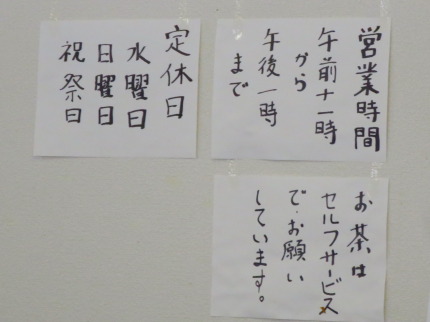 営業時間
午前十一時
から
午後一時
まで
定休日
水曜日
日曜日
祝祭日
お茶は
セルフサービス
で、お願い
しています。